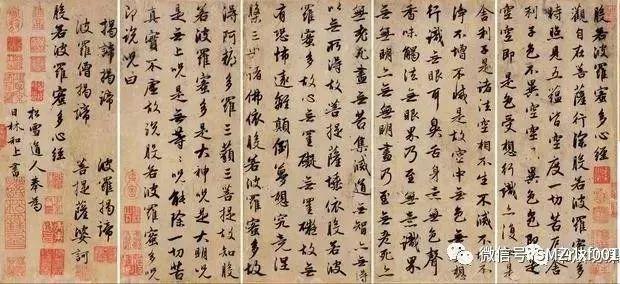 般若波羅蜜多心經
觀自在菩薩行深般若波羅蜜多
時照見五蘊皆空度一切苦厄舍
利子色不異空空不異色色即是
空空即是色受想行識亦復如是
舍利子是諸法空相不生不滅不垢不
淨不增不減是故空中無色無受想
行識無眼耳鼻舌身意無色聲
香味觸法無眼界乃至無意識界
無無明亦無無明盡乃至無老死亦
無老死盡無苦集滅道無智亦無得
以無所得故菩提薩埵依般若波
羅蜜多故心無罣礙無罣礙故無
有恐怖遠離顛倒夢想究竟涅
槃三世諸佛依般若波羅蜜多故
得阿耨多羅三藐三菩提故知般
若波羅蜜多是大神咒是大明咒
是無上咒是無等〻咒能除一切苦
真實不虛故說般若波羅蜜多咒
即說咒曰
揭諦揭諦 波羅揭諦
波羅僧揭諦 菩提薩婆訶
般若波羅蜜多心經
松雪道人奉為
日林和上書
微信号